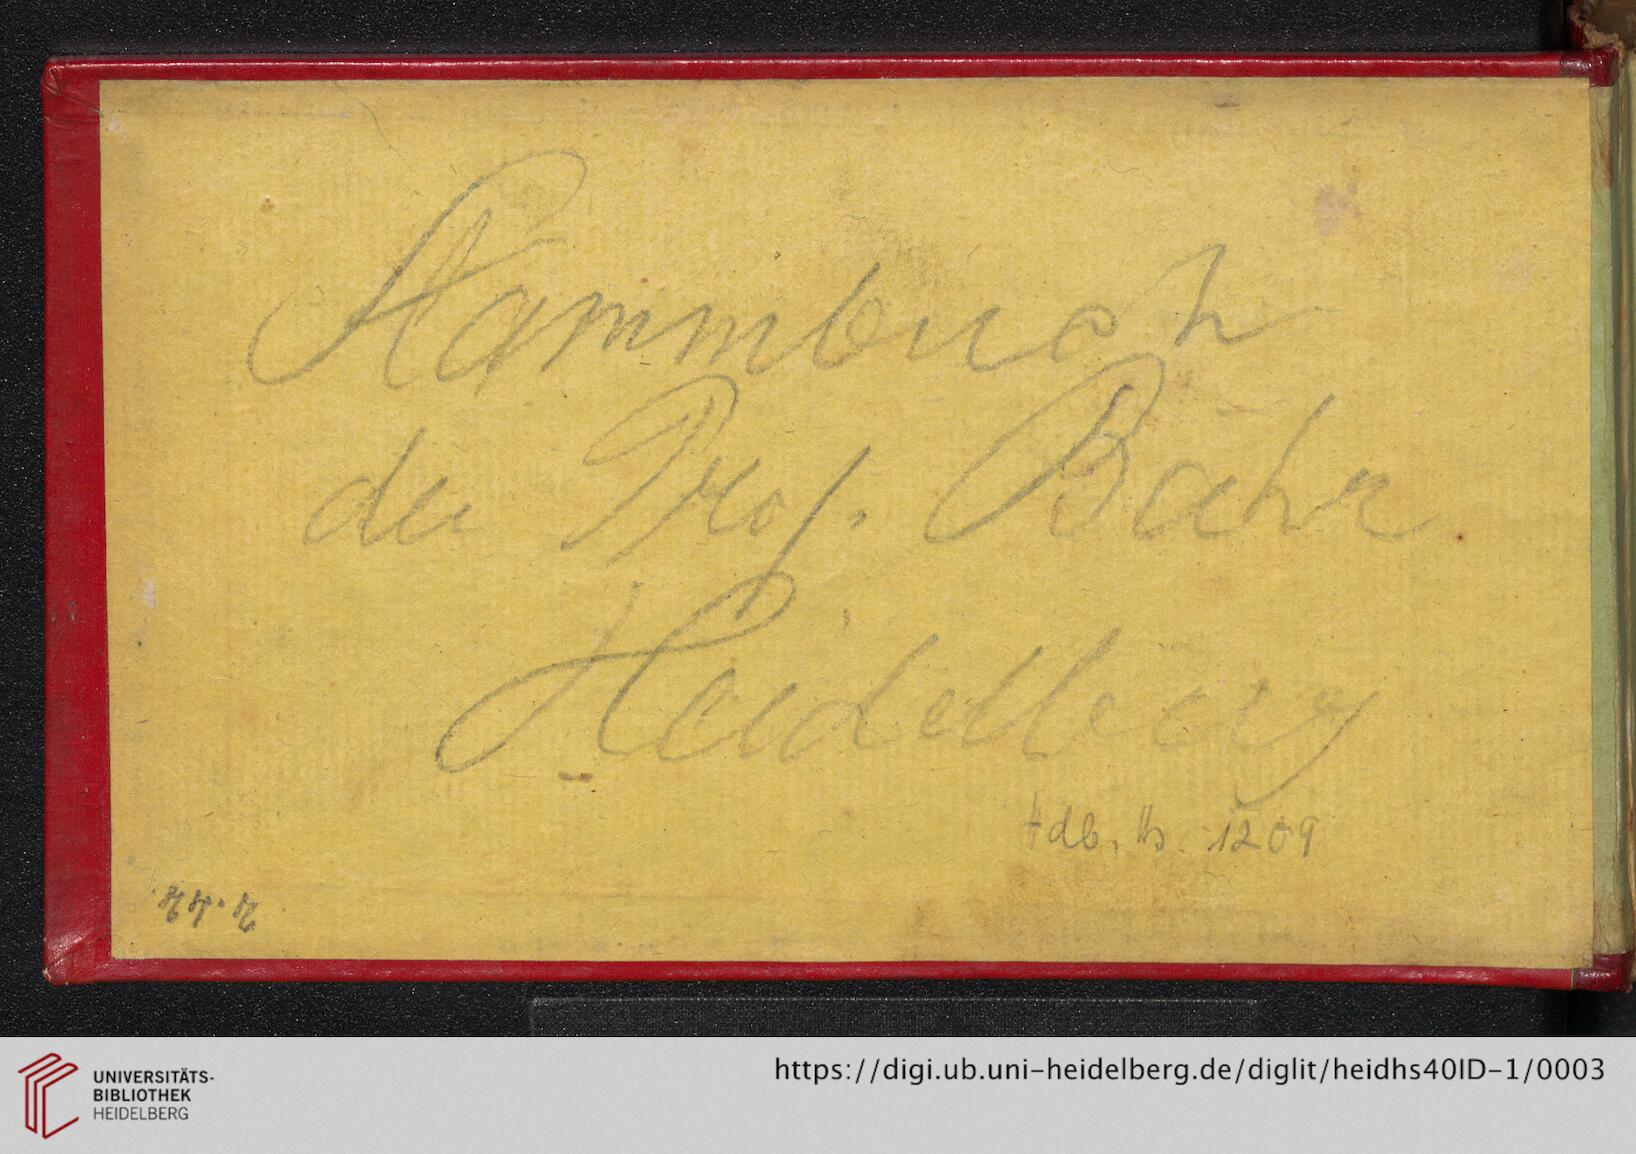 Stammbuch
des Prof. Bähr
Heidelberg
Hdb. Hs. 1209
UNIVERSITÄTS-
BIBLIOTHEK
HEIDELBERG
https://digi.ub.uni-heidelberg.de/diglit/heidhs40ID-1/0003